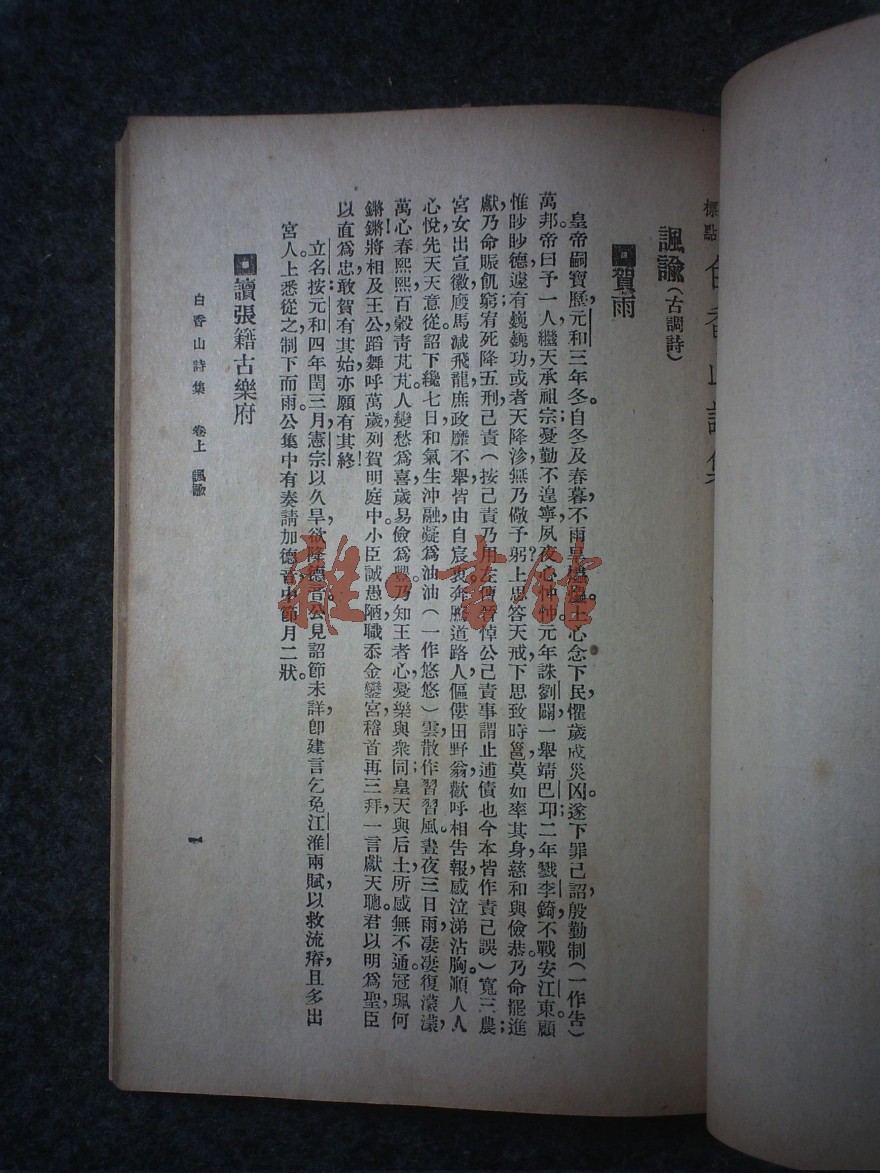 標點
諷諭（古調詩）
賀雨
皇帝嗣寶歷，元和三年冬。自冬及春暮，不雨旱爞爞。上心念下民，懼歲成災凶。遂下罪己詔，殷勤制（一作告）
萬邦。帝曰予一人，繼天承祖宗；憂勤不遑寧，夙夜心忡忡。元年誅劉闢，一舉靖巴邛；二年戮李錡，不戰安江東。顧
惟眇眇德，遽有巍巍功；或者天降沴，無乃儆予躬？上思答天戒，下思致時邕；莫如率其身，慈和與儉恭。乃命罷進
獻，乃命賑飢窮；宥死降五刑，己責（按己責乃用左傳晉悼公己責事謂止逋債也今本皆作責己誤）寬三農；
宮女出宣徽，廄馬減飛龍；庶政靡不舉，皆由自宸衷。奔騰道路人，傴僂田野翁；歡呼相告報，感泣涕沾胸。順人人
心悅，先天天意從；詔下纔七日，和氣生沖融；凝爲油油（一作悠悠）雲，散作習習風；晝夜三日雨，淒淒復濛濛；
萬心春熙熙，百穀靑芃芃。人變愁爲喜，歲易儉爲豐。乃知王者心，憂樂與衆同；皇天與后土，所感無不通。冠珮何
鏘鏘！將相及王公；蹈舞呼萬歲，列賀明庭中。小臣誠愚陋，職忝金鑾宮；稽首再三拜，一言獻天聰。君以明爲聖，臣
以直爲忠；敢賀有其始，亦願有其終！
立名按元和四年閏三月，憲宗以久旱，欲降德音，公見詔節未詳，卽建言乞免江淮兩賦，以救流瘠，且多出
宮人。上悉從之，制下而雨。公集中有奏請加德音中節月二狀。
讀張籍古樂府
白香山詩集 卷上 諷諭
一
雜·書館